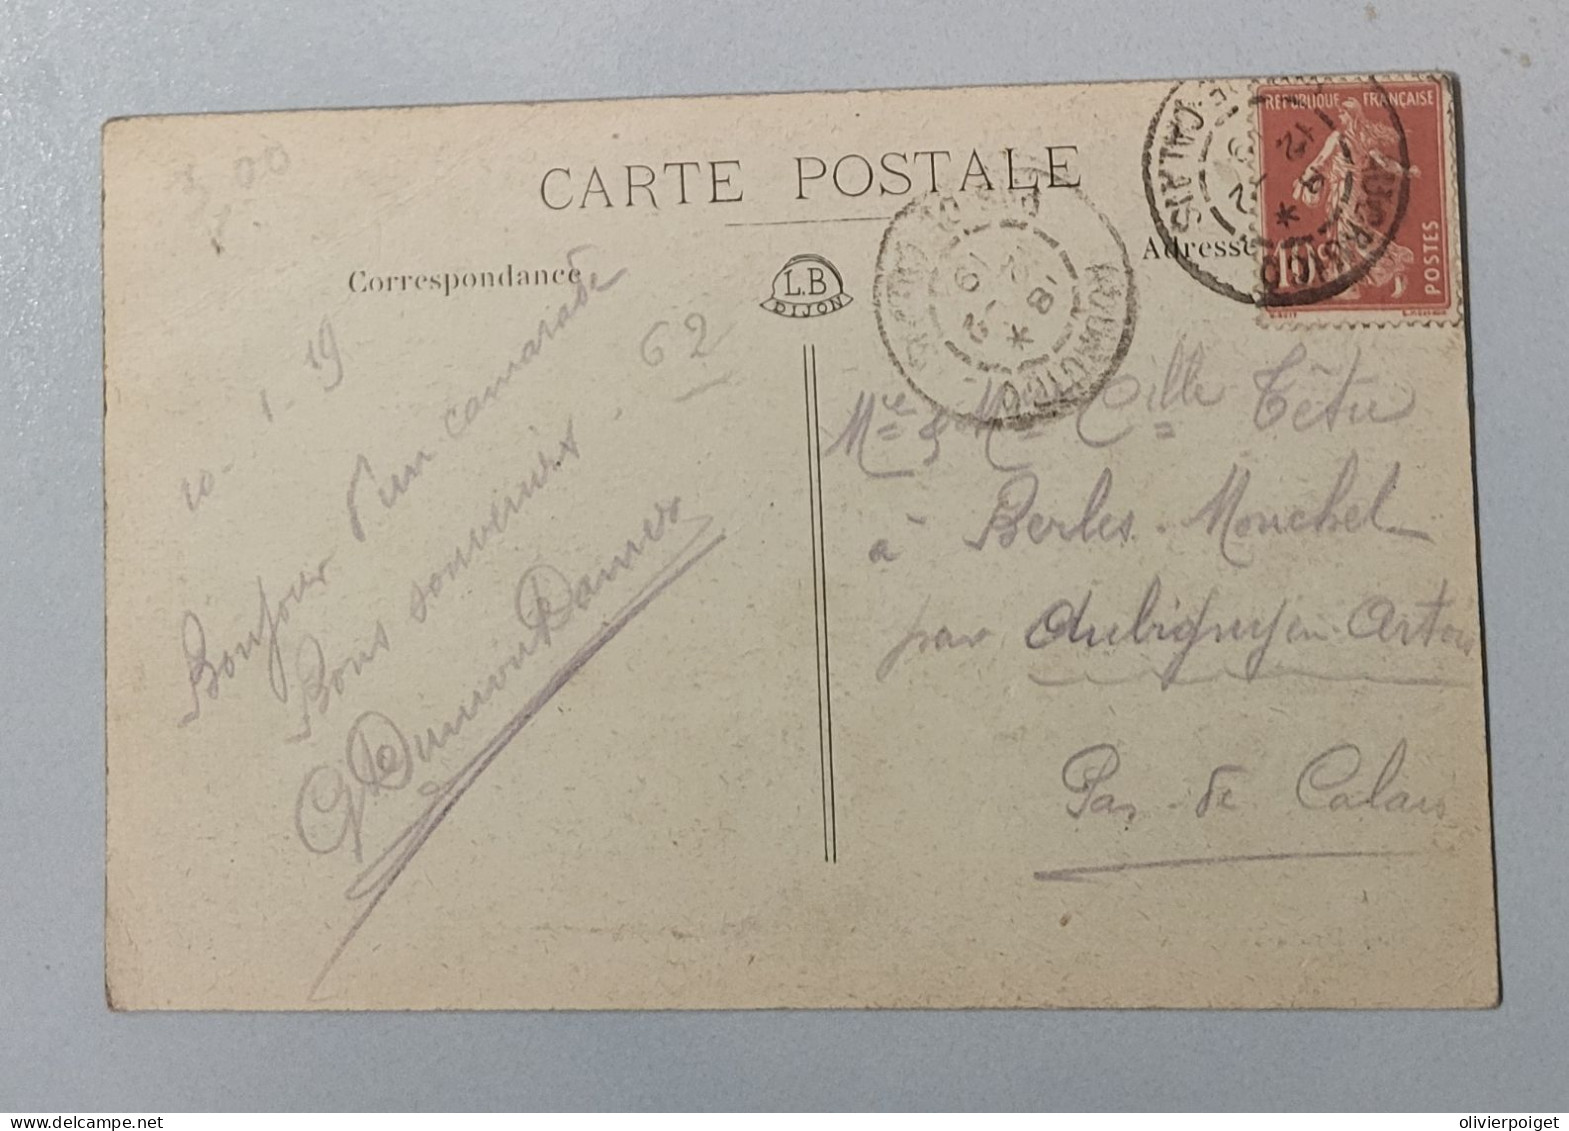 3,00
CARTE POSTALE
Correspondance
L.B
DIJON
Adresse
RÉPUBLIQUE FRANÇAISE
POSTES
10
CALAIS
62
10-1-19
Bonjour d'un camarade
Bons souvenirs
Mr & Mme Cille Têtu
à Berles-Monchel
par Aubigny en Artois
Pas-de Calais
olivierpoiget